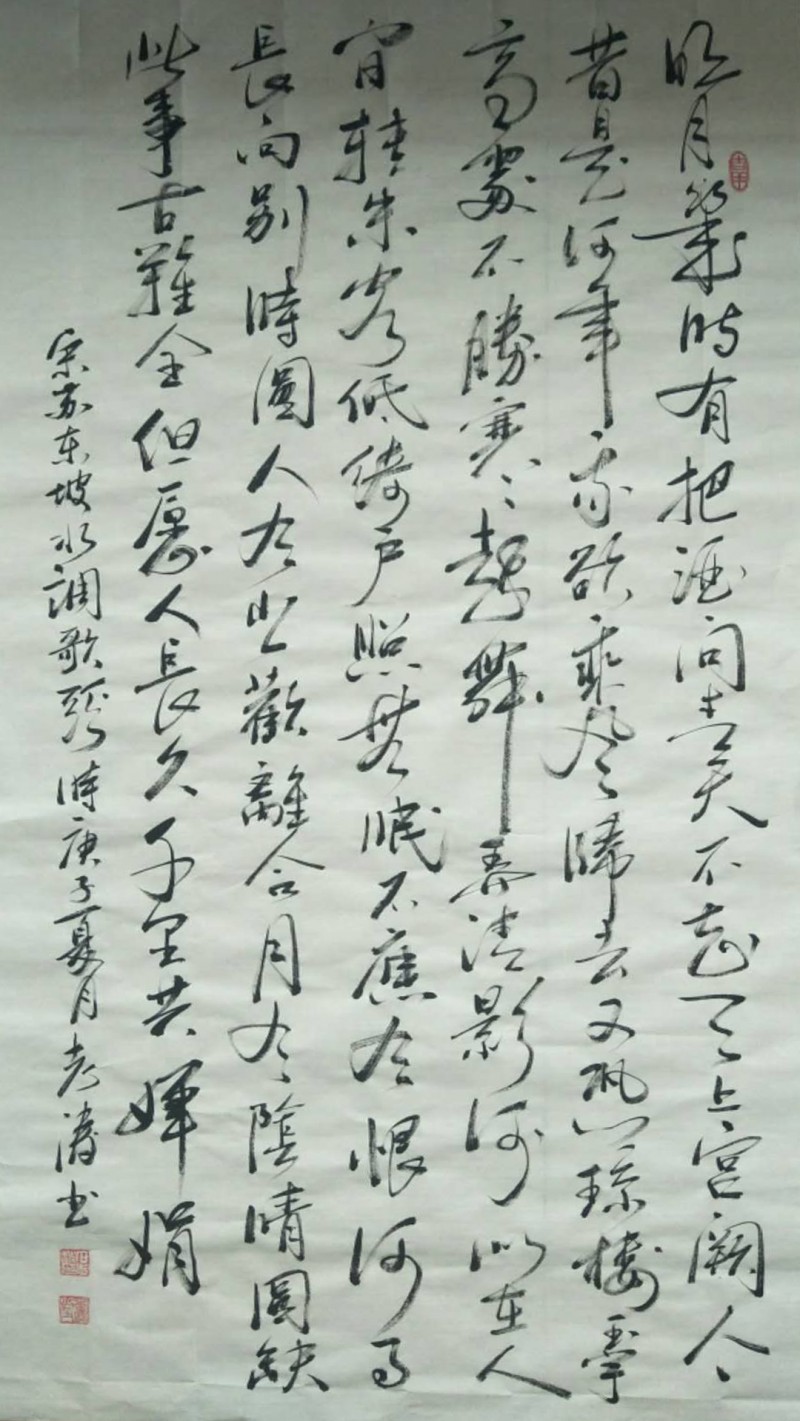 明月幾時有把酒問青天不知天上宫闕今
昔是何年我欲乘風歸去又恐琼樓玉宇
高處不勝寒起舞弄清影何似在人
間轉朱閣低綺户照無眠不應有恨何事
長向别時圓人有悲歡離合月有陰晴圓缺
此事古難全但愿人長久千里共嬋娟
宋苏东坡水調歌頭時庚子夏月老濤书